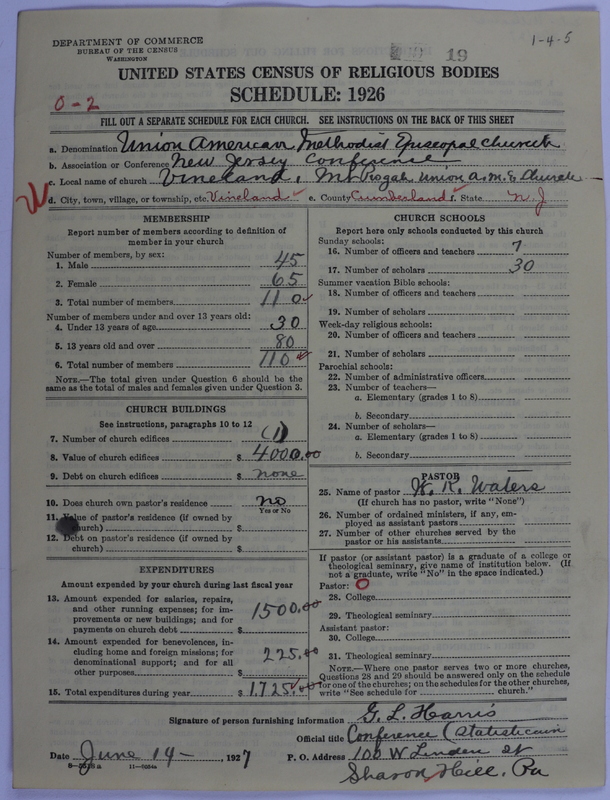 1-4-5
19
DEPARTMENT OF COMMERCE
BUREAU OF THE CENSUS
WASHINGTON
UNITED STATES CENSUS OF RELIGIOUS BODIES
0-2
SCHEDULE: 1926
FILL OUT A SEPARATE SCHEDULE FOR EACH CHURCH. SEE INSTRUCTIONS ON THE BACK OF THIS SHEET
a. Denomination Union American Methodist Episcopal Church
b. Association or Conference New Jersey Conference
c. Local name of church Vineland, Mt Pisgah Union A.M.E Church
d. City, town, village, or township, etc. Vineland e. County Cumberland f. State N J
MEMBERSHIP
Report number of members according to definition of member in your church
Number of members, by sex:
1. Male 45
2. Female 65
3. Total number of members 110
Number of members under and over 13 years old:
4. Under 13 years of age 30
5. 13 years old and over 80
6. Total number of members 110
NOTE.—The total given under Question 6 should be
same as the total of males and females given under Question 3.
CHURCH BUILDINGS
See instructions, paragraphs 10 to 12
7. Number of church edifices (1)
8. Value of church edifices $ 4000.00
9. Debt on church edifices $ none
10. Does church own pastor's residence no
Yes or No
11. Value of pastor's residence (if owned by
church) $
12. Debt on pastor's residence (if owned by
church) $
EXPENDITURES
Amount expended by your church during last fiscal year
13. Amount expended for salaries, repairs,
and other running expenses; for im-
provements or new buildings; and for
payments on church debt $ 1500.00
14. Amount expended for benevolences, in-
cluding home and foreign missions; for
denominational support; and for all
other purposes $ 225.00
15. Total expenditures during year $ 1725.00
CHURCH SCHOOLS
Report here only schools conducted by this church
Sunday schools:
16. Number of officers and teachers 7
17. Number of scholars 30
Summer vacation Bible schools:
18. Number of officers and teachers
19. Number of scholars
Week-day religious schools:
20. Number of officers and teachers
21. Number of scholars
Parochial schools:
22. Number of administrative officers
23. Number of teachers—
a. Elementary (grades 1 to 8)
b. Secondary
24. Number of scholars—
a. Elementary (grades 1 to 8)
b. Secondary
PASTOR
25. Name of pastor W. R. Waters
(If church has no pastor, write "None")
26. Number of ordained ministers, if any, em-
ployed as assistant pastors
27. Number of other churches served by the
pastor or his assistants
If pastor (or assistant pastor) is a graduate of a college or
theological seminary, give name of institution below. (If
not a graduate, write "No" in the space indicated.)
Pastor: O
28. College
29. Theological seminary
Assistant pastor:
30. College
31. Theological seminary
NOTE.—Where one pastor serves two or more churches,
Questions 28 and 29 should be answered only on the schedule
for one of the churches; on the schedules for the other churches,
write "See schedule for church."
Signature of person furnishing information G. L. Harris
Official title Conference Statistician
Date June 14- , 1927 P. O. Address 100 W Linden st
11-9084a
Sharon Hill, Pa